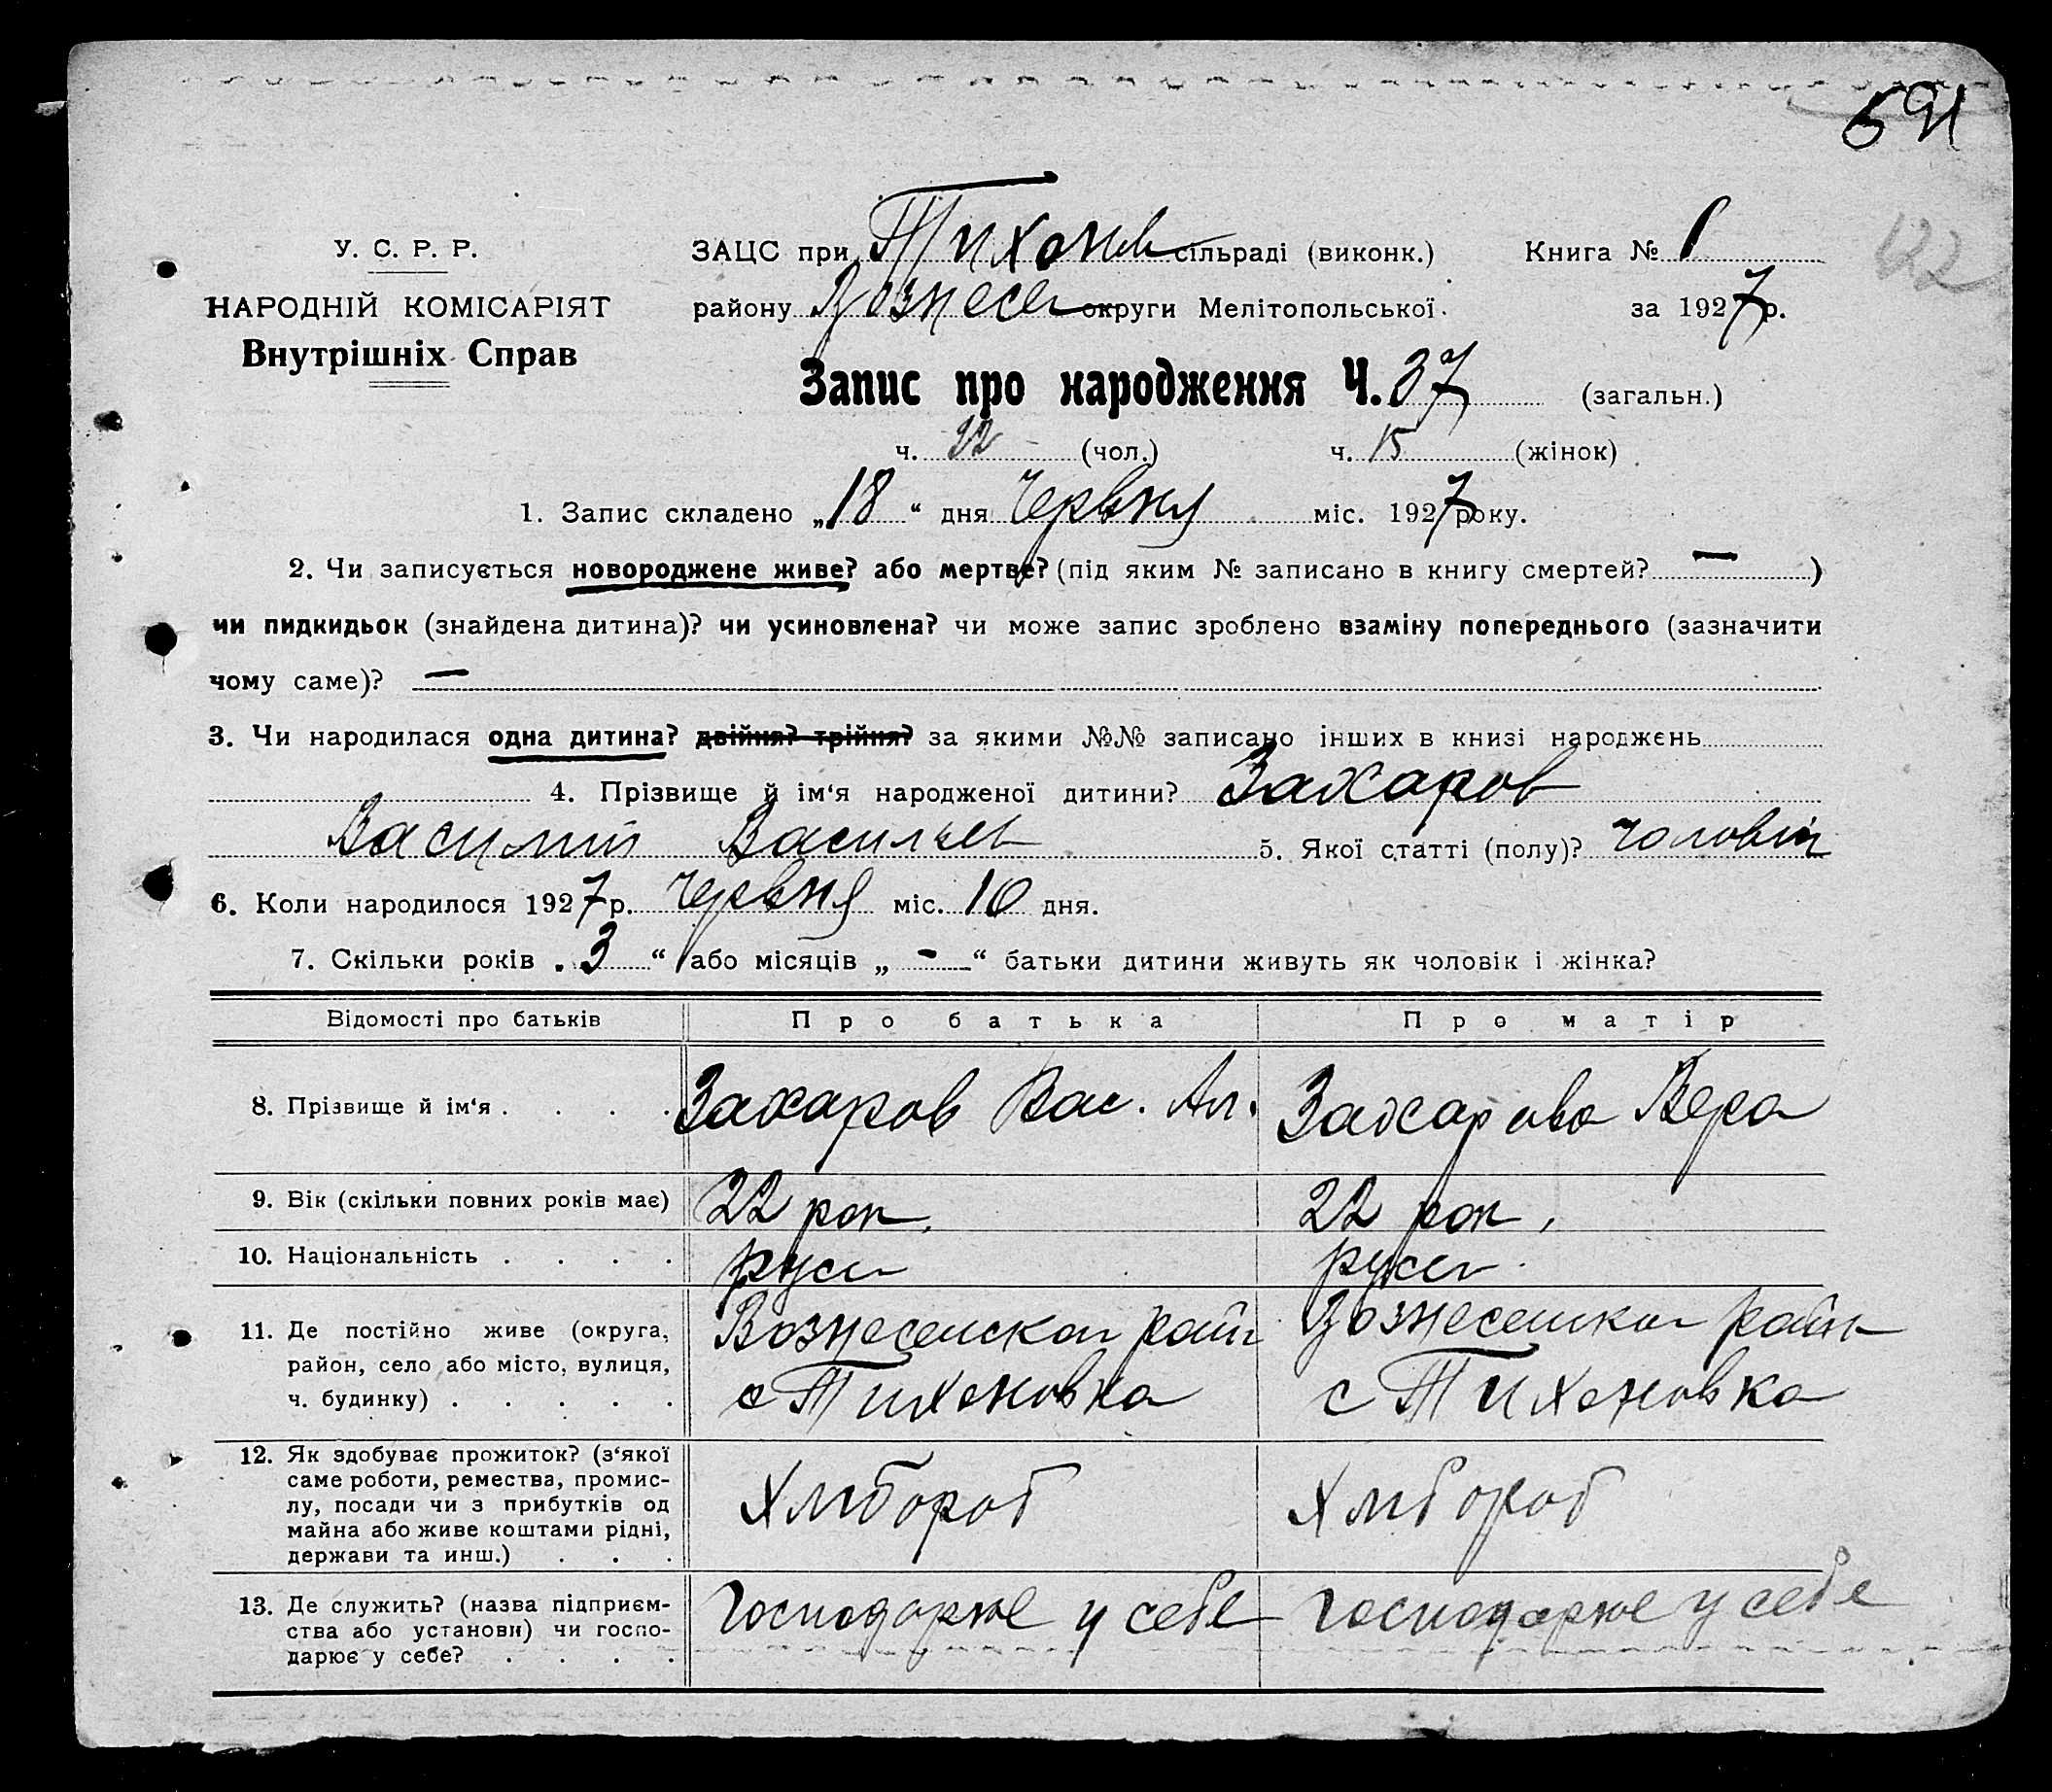 691
122
У. С. Р. Р.
НАРОДНІЙ КОМІСАРІЯТ
Внутрішніх Справ
ЗАЦС при Тихонов сільраді (виконк.) Книга № 1
району Вознесен округи Мелітопольської. за 1927 р.
Запис про народження Ч. 37 (загальн.)
ч. 22 (чол.) ч. 15 (жінок)
1. Запис складено „18“ дня Червня міс. 1927 року.
2. Чи записується новороджене живе? або мертве? (під яким № записано в книгу смертей? — )
чи пидкидьок (знайдена дитина)? чи усиновлена? чи може запис зроблено взаміну попереднього (зазначити
чому саме)? —
3. Чи народилася одна дитина? двійня? трійня? за якими №№ записано інших в книзі народжень
4. Прізвище й ім‘я народженої дитини? Захаров
Василий Васильев 5. Якої статті (полу)? чоловіч
6. Коли народилося 1927 р. Червня міс. 10 дня.
7. Скільки років „3“ або місяців „-“ батьки дитини живуть як чоловік і жінка?
Відомості про батьків Про батька Про матір
8. Прізвище й ім‘я . . . . Захаров Вас. Ал. Захарова Вера
9. Вік (скільки повних років має) 22 рок. 22 рок.
10. Національність . . . . русск русск.
11. Де постійно живе (округа,
район, село або місто, вулиця,
ч. будинку) . . . . .
Вознесенског район
с Тихоновка
Вознесенског район
с Тихоновка
12. Як здобуває прожиток? (з‘якої
саме роботи, ремества, промис-
лу, посади чи з прибутків од
майна або живе коштами рідні,
держави та инш.) . . .
Хлібороб Хлібороб
13. Де служить? (назва підприєм-
ства або установи) чи госпо-
дарює у себе? . . . .
Господарює у себе Господарює у себе